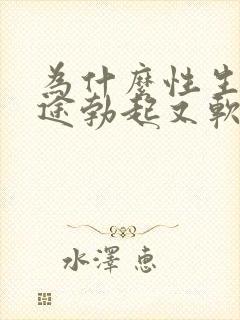 為什麼性生
途勃起又軟
水澤惠